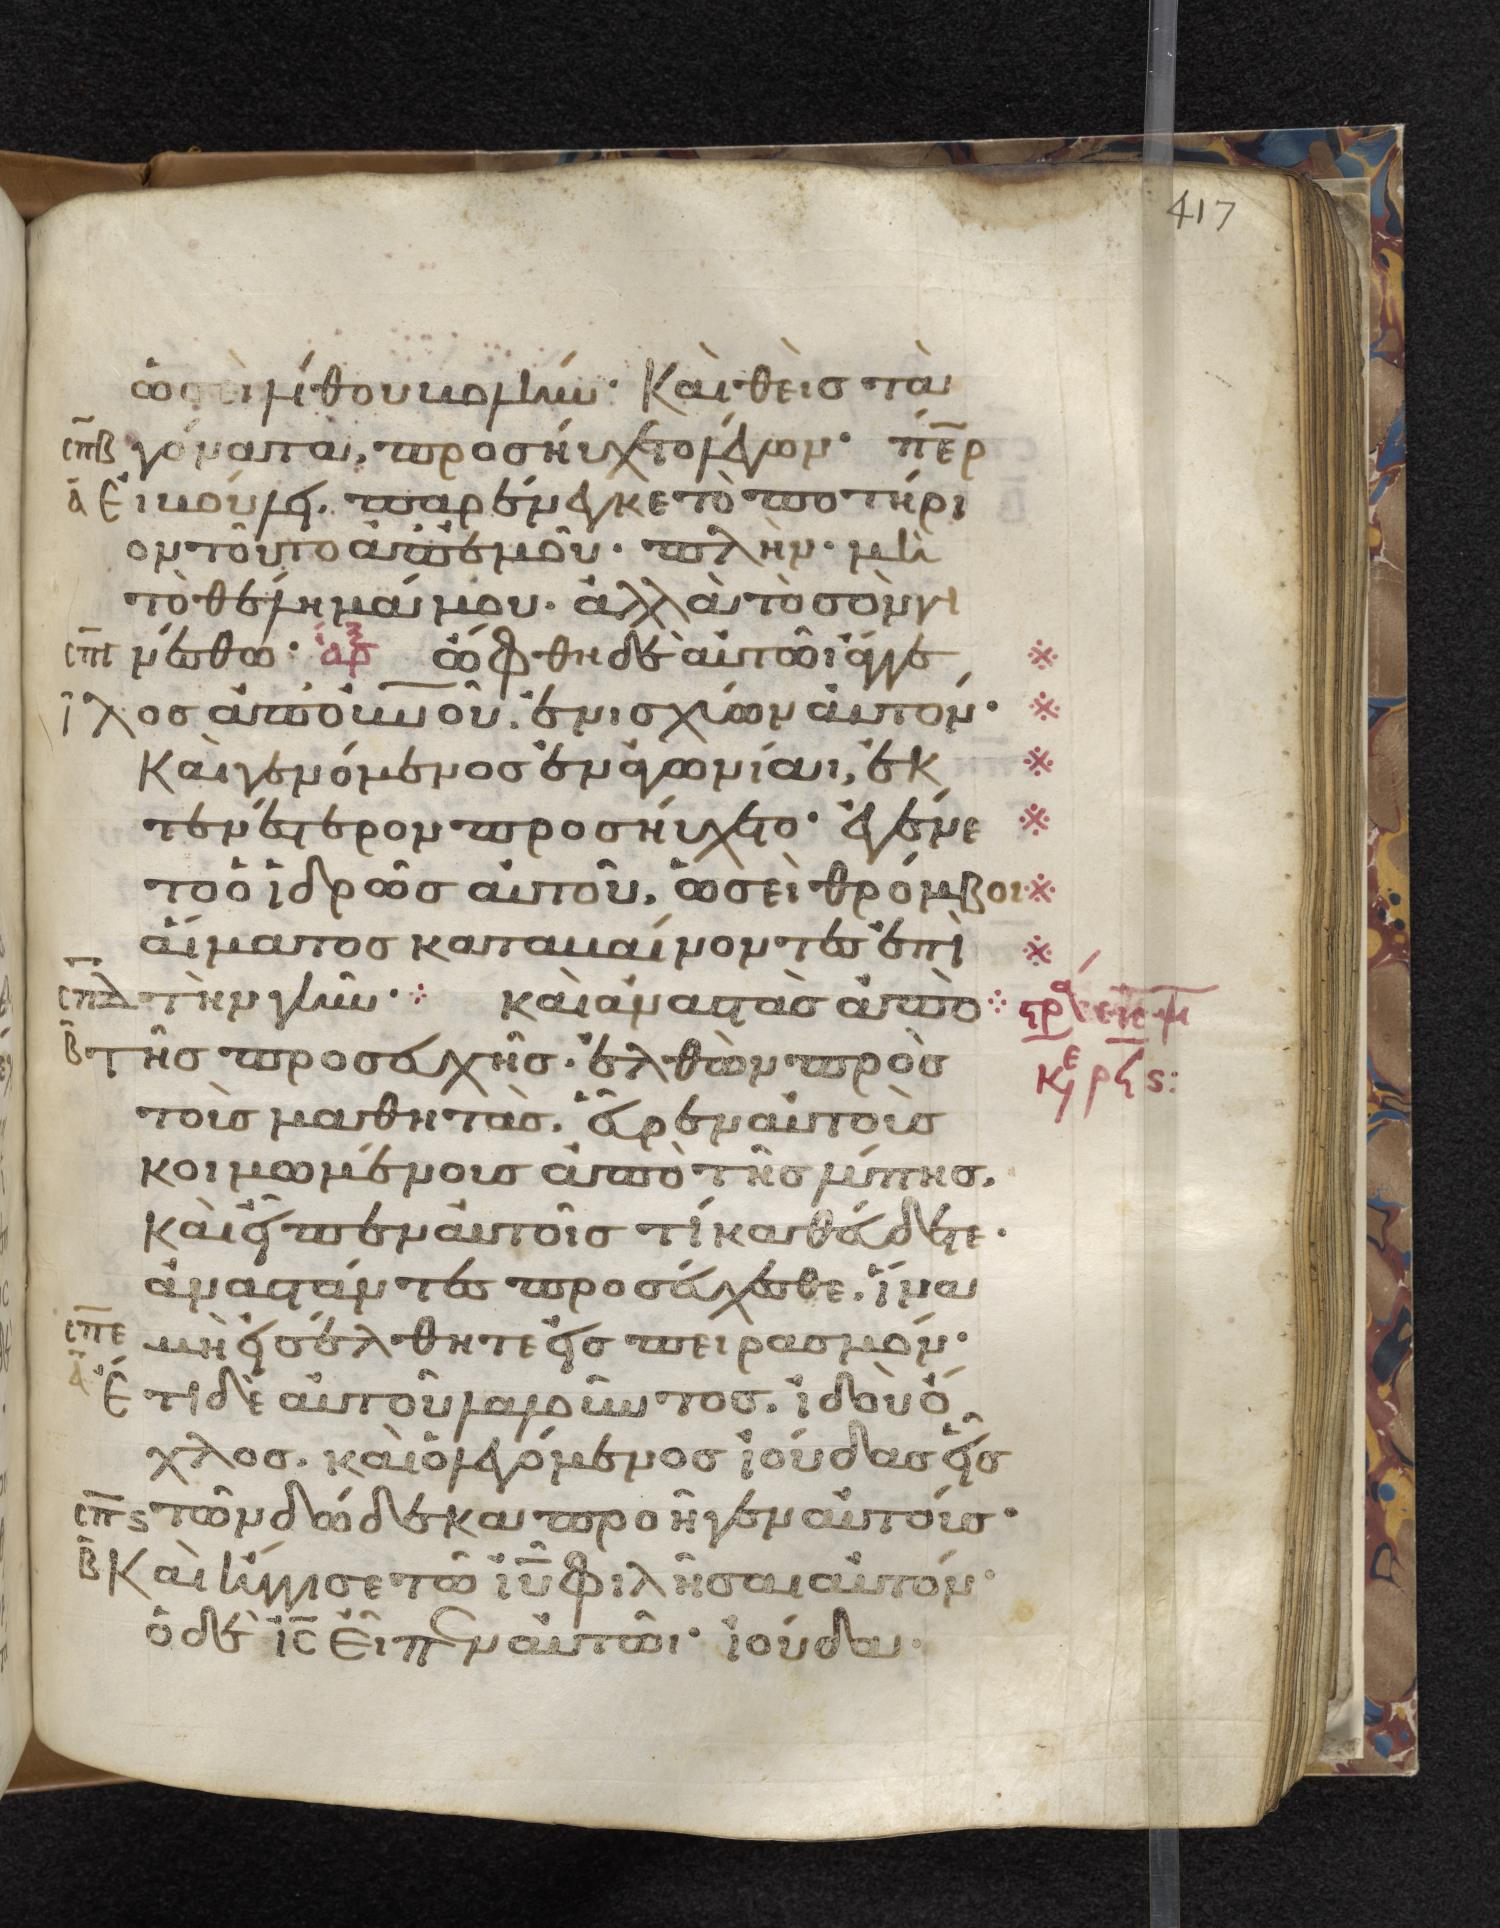 417
ὡσεὶ λίθου βολήν· Καὶ θεὶς τὰ
σπβ γόνατα, προσηύχετο λέγων· π̅ε̅ρ
α Εἰ βούλει, παρένεγκε τὸ ποτήρι
ον τοῦτο ἀπ' ἐμοῦ· πλὴν· μὴ
τὸ θέλημά μου· ἀλλὰ τὸ σὸν γι
σπγ νέσθω· ὤφθη δὲ αὐτῶι ἄγγε
ι λος ἀπὸ ο̅υ̅ν̅ο̅ῦ̅. ἐνισχύων αὐτόν·
Καὶ γενόμενος ἐν ἀγωνίαι, ἐκ
τενέστερον προσηύχετο· ἐγένε
το ὁ ἱδρῶς αὐτοῦ, ὡσεὶ θρόμβοι
αἵματος καταβαίνοντες ἐπὶ
σπδ τὴν γῆν· καὶ ἀναστὰς ἀπὸ
β τῆς προσευχῆς· ἐλθὼν πρὸς
τοὺς μαθητὰς. εὗρεν αὐτοὺς
κοιμωμένους ἀπὸ τῆς λύπης.
καὶ εἶπεν αὐτοῖς τί καθεύδετε·
ἀναστάντες προσεύχεσθε. ἵνα
σπε μὴ εἰσέλθητε εἰς πειρασμόν·
α Ἔτι δὲ αὐτοῦ λαλοῦντος. ἰδοὺ ὄ
χλος. καὶ ὁ λεγόμενος ἰούδας εἷς
σπς τῶν δώδεκα προῆγεν αὐτούς·
β Καὶ ἤγγισε τῶ ἰ̅υ̅ φιλῆσαι αὐτόν·
ὁ δὲ ἰ̅ς̅ εἶπεν αὐτῶι· ἰούδα·